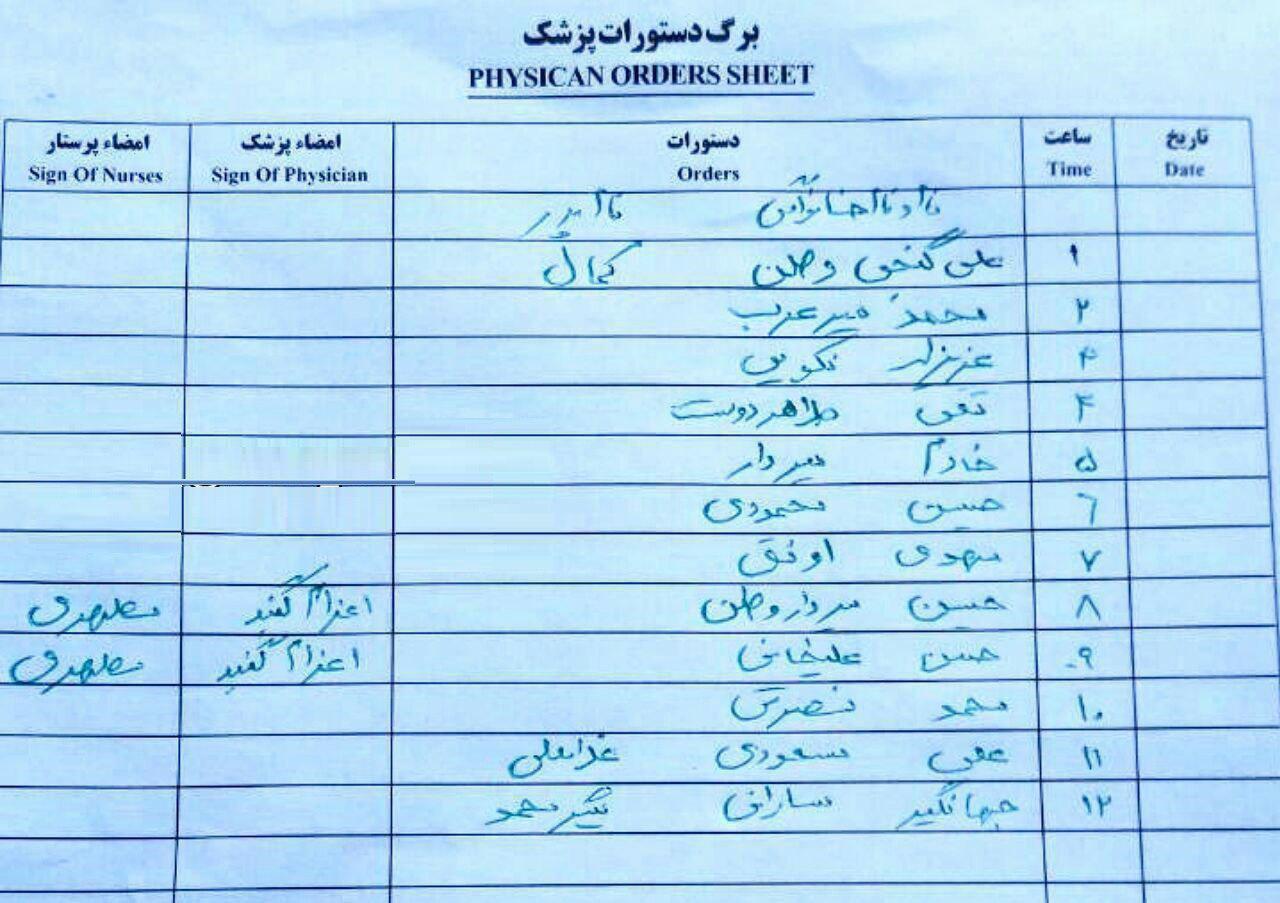 برگ دستورات پزشک
PHYSICAN ORDERS SHEET
تاریخ ساعت دستورات امضاء پزشک امضاء پرستار
Date Time Orders Sign Of Physician Sign Of Nurses
نام و نام خانوادگی نام پدر
۱ علی گنجی وطن کمال
۲ محمد میرعرب
۳ نکویی
۴ تقی طاهردوست
۵ خادم سردار
۶ حسین محمودی
۷ مهدی اوثق
۸ حسین سردار وطن اعزام گنبد
۹ حسن علیخانی اعزام گنبد
۱۰ محمد نصرتی
۱۱ مسعودی غلامعلی
۱۲ جهانگیر سارانی